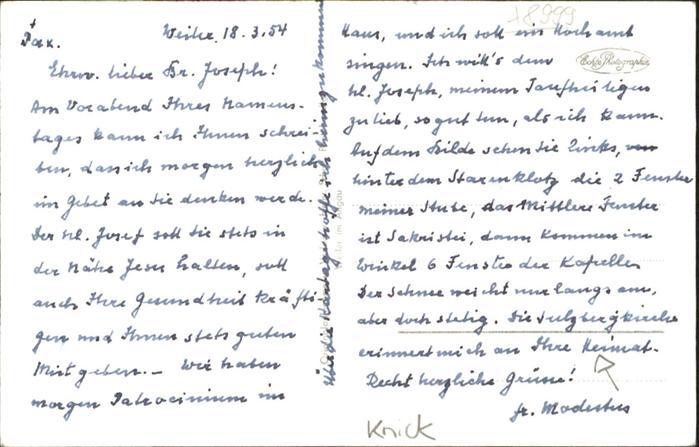 +
Pax.
Weiler, 18.3.54
Ehrw. lieber Br. Joseph!
Am Vorabend Ihres Namens-
tages kann ich Ihnen schrei-
ben, dass ich morgen herzlich
im Gebet an Sie denken werde.
Der hl. Josef soll Sie stets in
der Nähe Jesu halten, soll
auch Ihre Gesundheit kräfti-
gen und Ihnen stets guten
Mut geben. — Wir haben
morgen Patrocinium im
Haus, und ich soll ein Hochamt
singen. Ich will's dem
hl. Joseph, meinem Taufheiligen
zu lieb, so gut tun, als ich kann.
Auf dem Bilde sehen Sie links, von
hinter dem Starenklotz die 2 Fenster
meiner Stube, das Mittlere Fenster
ist Sakristei, dann kommen im
Winkel 6 Fenster der Kapelle.
Der Schnee weicht nur langsam,
aber doch stetig. Die Sulzbergkirche
erinnert mich an Ihre Heimat.
Recht herzliche Grüsse!
fr. Modestus
Für die Kartage hoffe ich heimzukommen
Echte Photographie
Knick